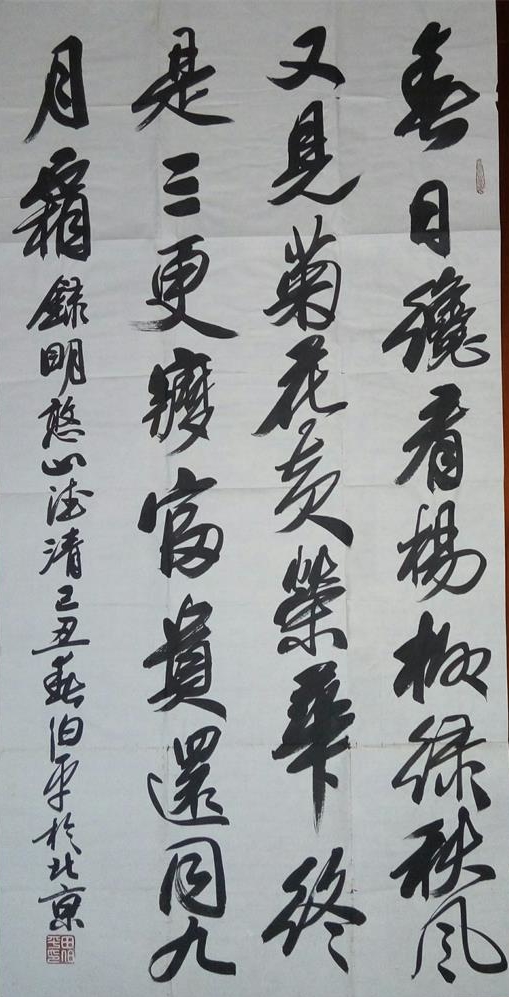 春日纔看楊柳綠秋風
又見菊花黃榮華終
是三更夢富貴還同九
月霜錄明憨山德清己丑春伯平於北京